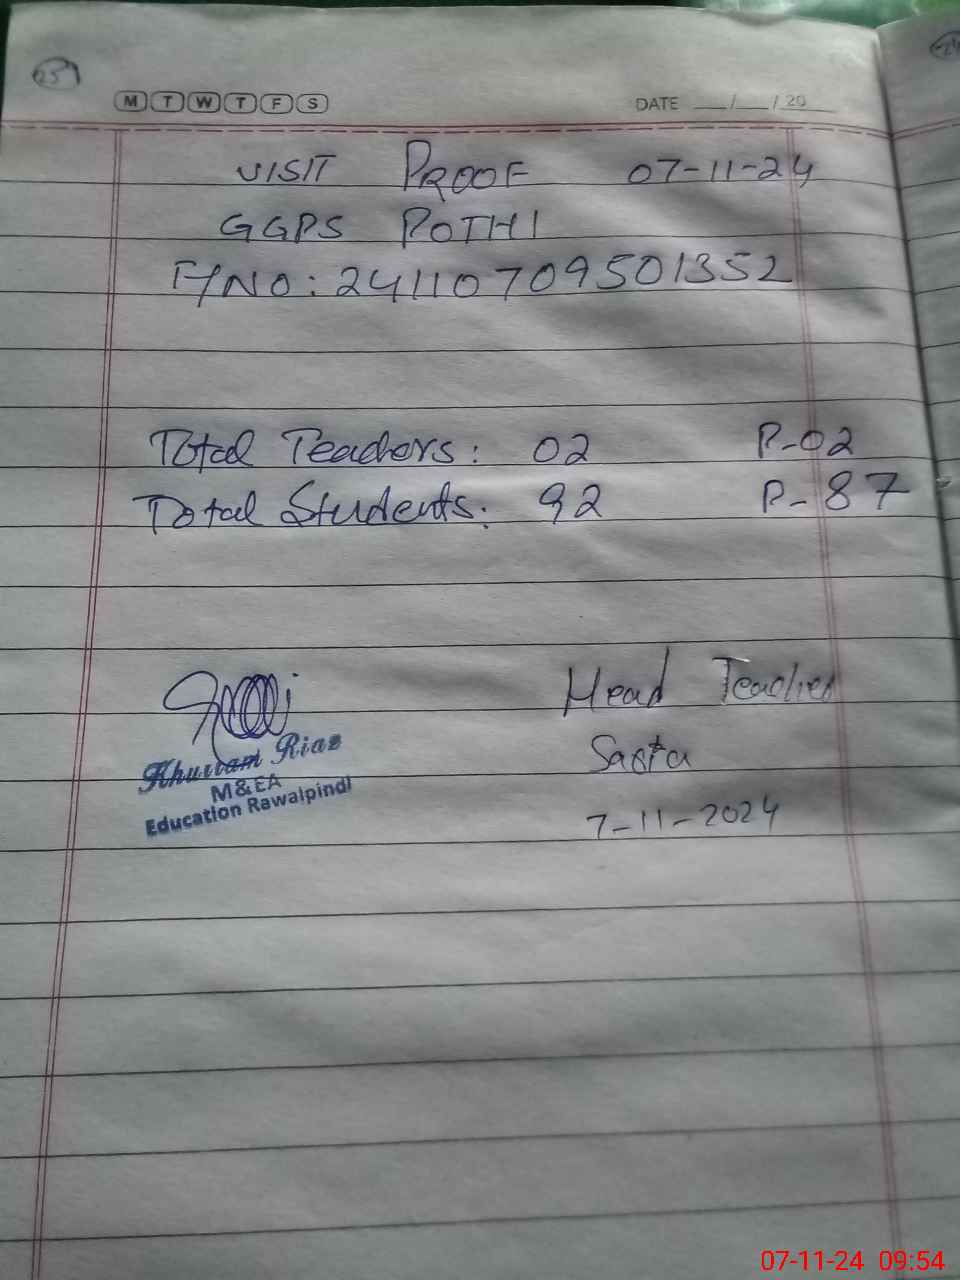 25
M T W T F S
DATE __/__/20__
VISIT PROOF 07-11-24
GGPS POTHI
F/NO: 24110709501352
Total Teachers: 02 P-02
Total Students: 92 P-87
Head Teacher
Khurram Riaz
M&EA
Education Rawalpindi
7-11-2024
07-11-24 09:54